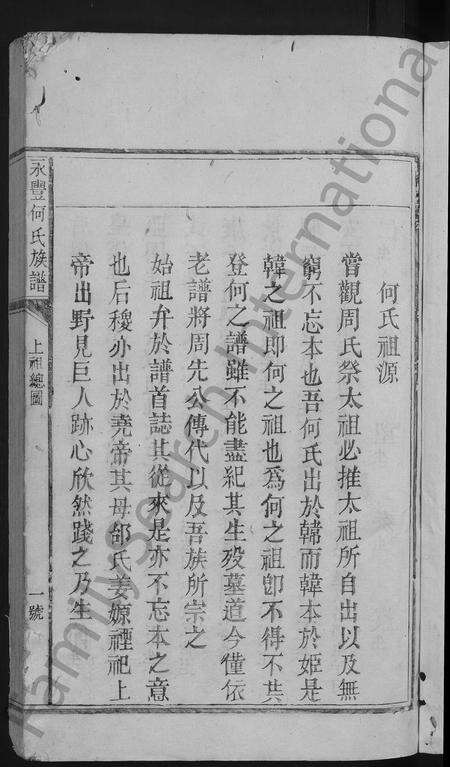 何氏祖源
嘗觀周氏祭太祖必推太祖所自出以及無
窮不忘本也吾何氏出於韓而韓本於姬是
韓之祖即何之祖也為何之祖卽不得不共
登何之譜雖不能盡紀其生歿墓道今僅依
老譜將周先公傳代以及吾族所宗之
始祖弁於譜首誌其從來是亦不忘本之意
也后稷亦出於堯帝其母邰氏姜嫄禋祀上
帝出野見巨人跡心欣然踐之乃生
永豐何氏族譜
上祖總圖
一號
familysearch International